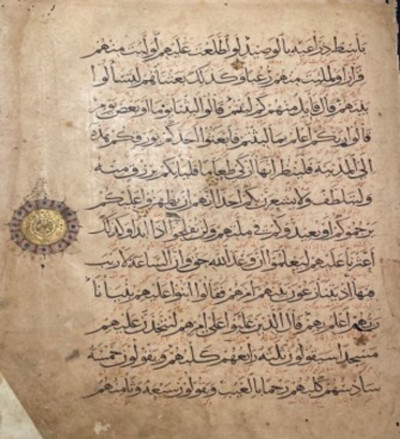 باسط ذراعيه بالوصيد لو اطلعت عليهم لوليت منهم
فرارا ولملئت منهم رعبا وكذلك بعثناهم ليتسالوا
بينهم قال قايل منهم كم لبثتم قالوا لبثنا يوما او بعض يوم
قالوا ربكم اعلم بما لبثتم فابعثوا احدكم بورقكم هذه
الى المدينة فلينظر ايها ازكى طعاما فلياتكم برزق منه
وليتلطف ولا يشعرن بكم احدا انهم ان يظهروا عليكم
يرجموكم او يعيدوكم في ملتهم ولن تفلحوا اذا ابدا وكذلك
اعثرنا عليهم ليعلموا ان وعد الله حق وان الساعة لا ريب
فيها اذ يتنازعون بينهم امرهم فقالوا ابنوا عليهم بنيانا
ربهم اعلم بهم قال الذين غلبوا على امرهم لنتخذن عليهم
مسجدا سيقولون ثلثة رابعهم كلبهم ويقولون خمسة
سادسهم كلبهم رجما بالغيب ويقولون سبعة وثامنهم